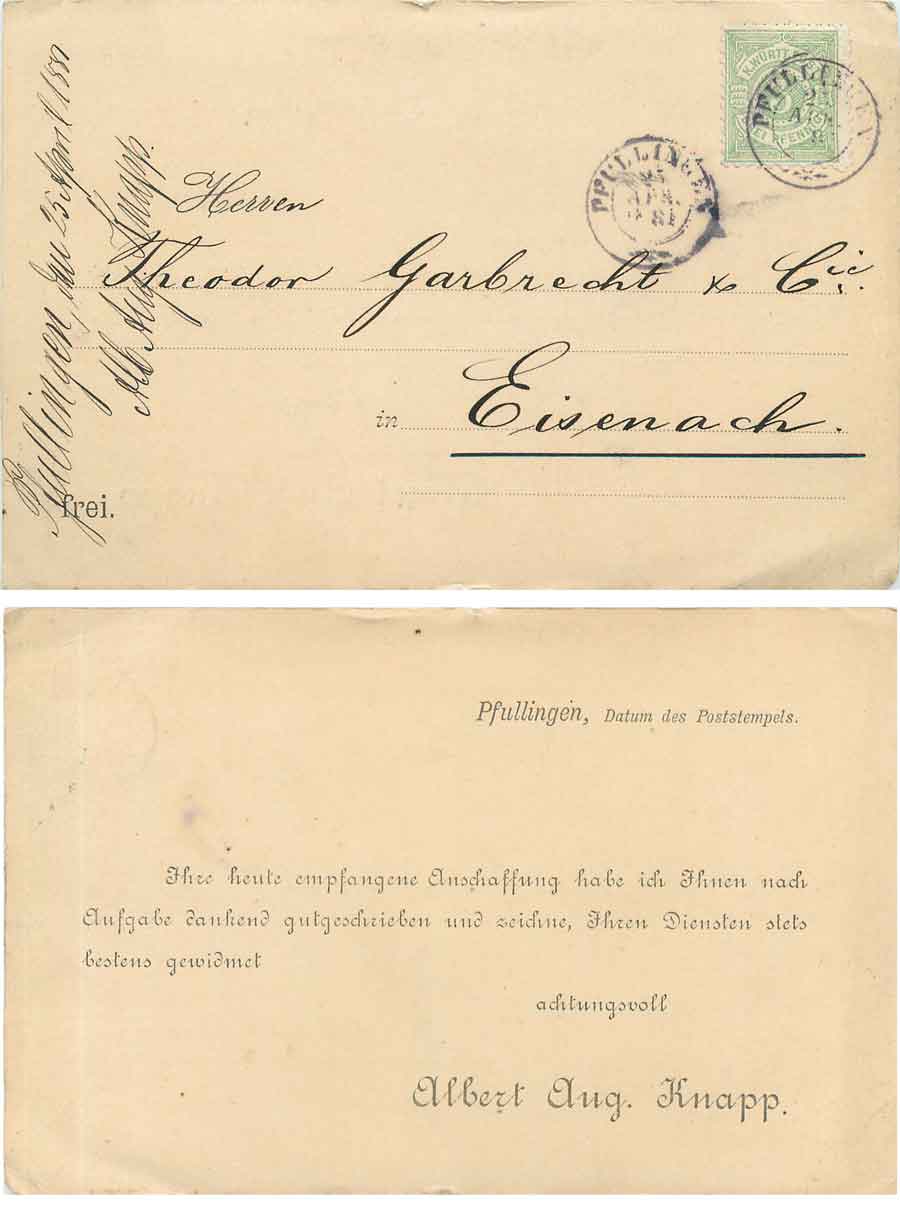 K. WÜRTT.
PFULLINGEN
PFULLINGEN
25
APR.
81
Herren
Theodor Garbrecht & Cie.
in Eisenach.
frei.
Pfullingen, den 25 April 1881
Alb. Aug. Knapp.
Pfullingen, Datum des Poststempels.
Ihre heute empfangene Anschaffung habe ich Ihnen nach
Aufgabe dankend gutgeschrieben und zeichne, Ihren Diensten stets
bestens gewidmet
achtungsvoll
Albert Aug. Knapp.